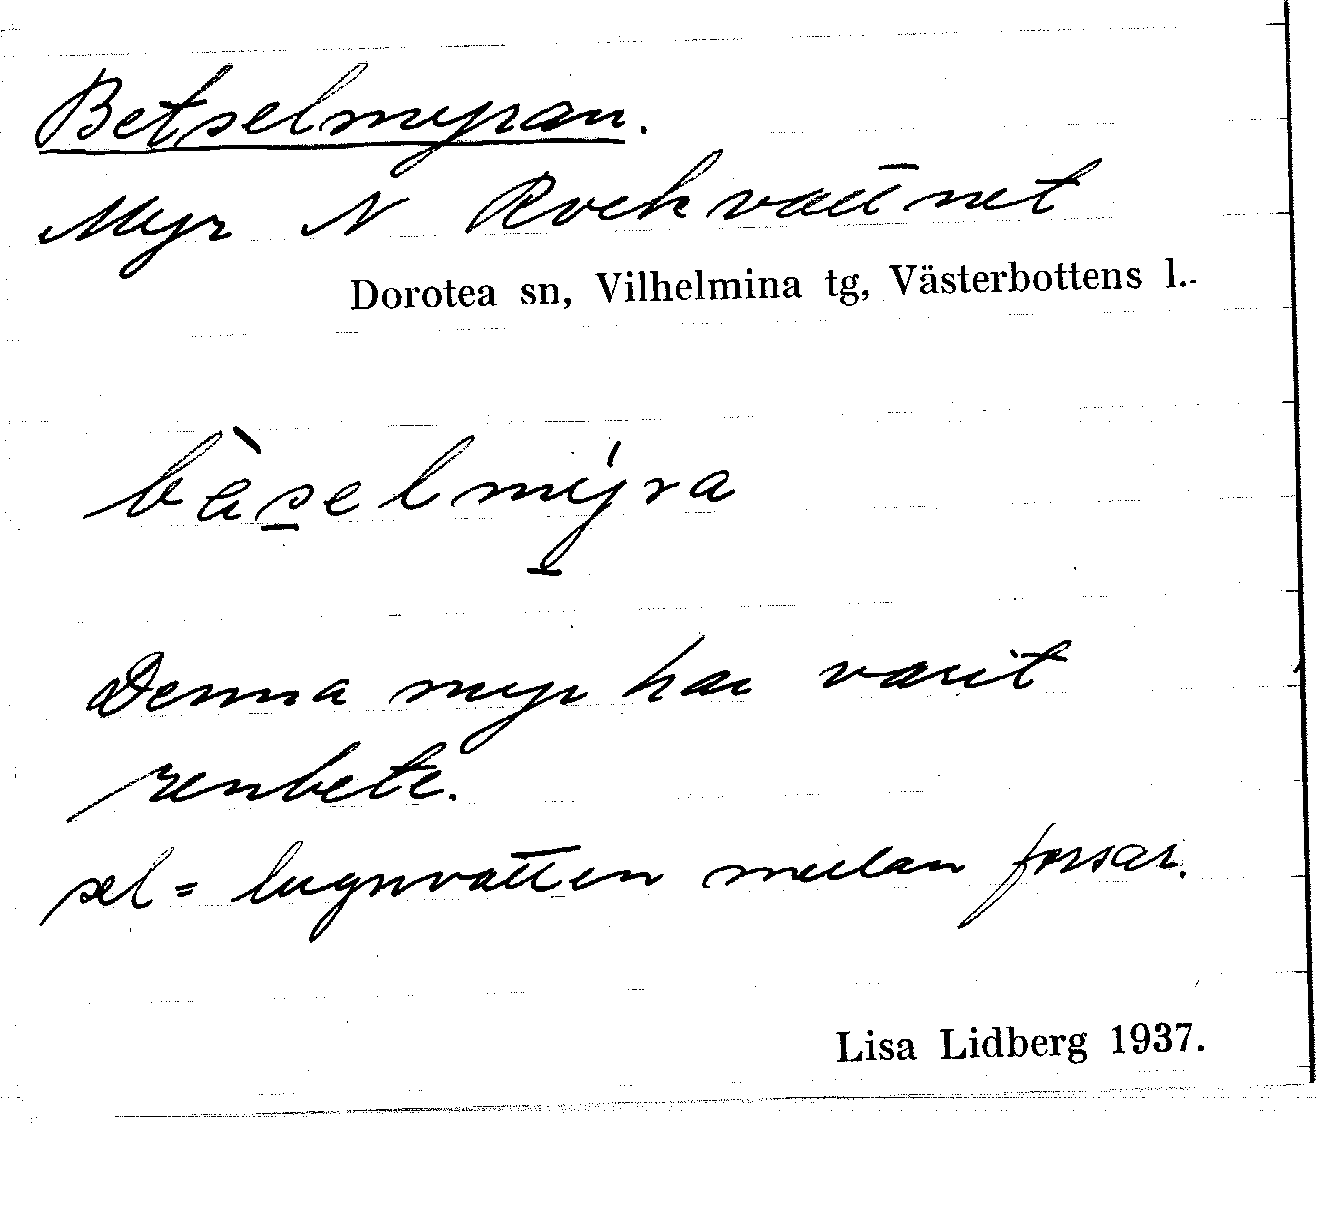 Betselmyran.
Myr N Rockvattnet
Dorotea sn, Vilhelmina tg, Västerbottens l.
bèselmýra
Denna myr har varit
renbete.
sel = lugnvatten mellan forsar.
Lisa Lidberg 1937.